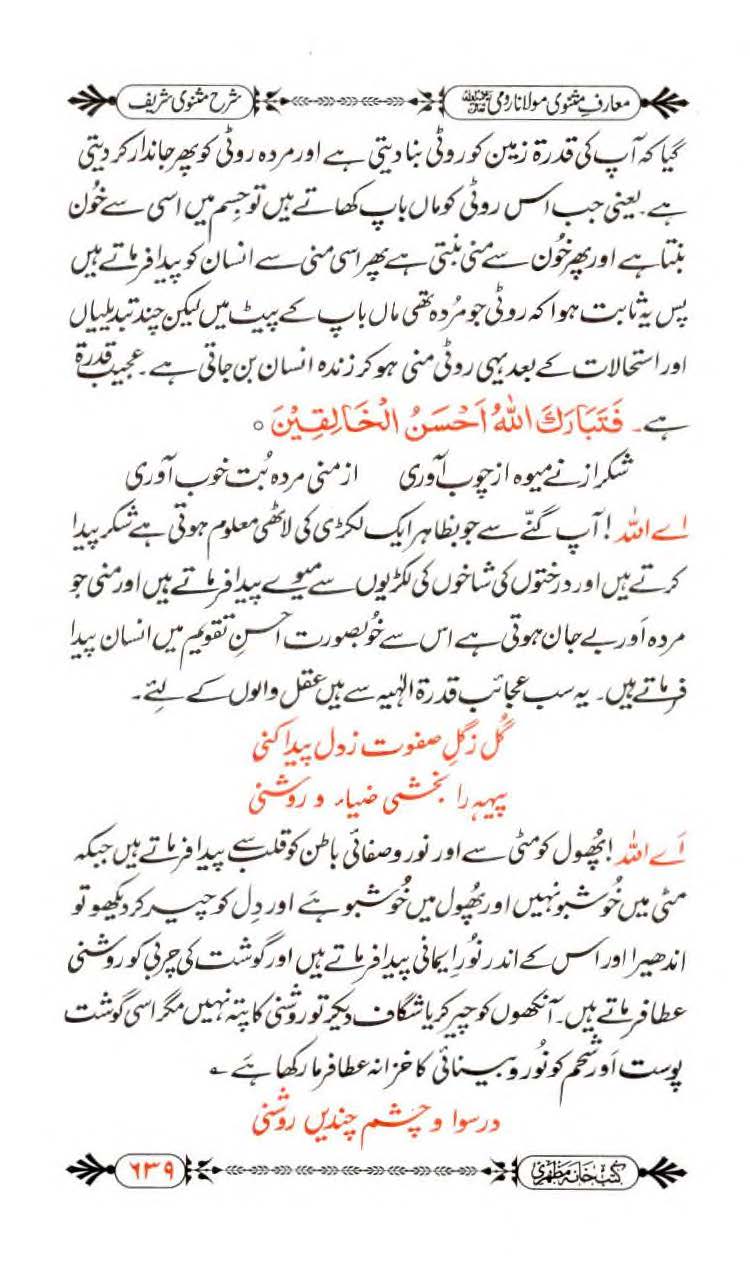 معارفِ مثنوی مولانا رومی رحمۃ اللہ علیہ
شرح مثنوی شریف
گیا کہ آپ کی قدرۃ زمین کو روٹی بنا دیتی ہے اور مردہ روٹی کو پھر جاندار کر دیتی
ہے۔ یعنی جب اس روٹی کو ماں باپ کھاتے ہیں تو جسم میں اسی سے خُون
بنتا ہے اور پھر خُون سے منی بنتی ہے پھر اسی منی سے انسان کو پیدا فرماتے ہیں
پس یہ ثابت ہوا کہ روٹی جو مُردہ تھی ماں باپ کے پیٹ میں لیکن چند تبدیلیاں
اور استحالات کے بعد یہی روٹی منی ہو کر زندہ انسان بن جاتی ہے۔ عجیب قدرۃ
ہے۔ فَتَبَارَكَ اللّٰهُ اَحْسَنُ الْخَالِقِيْنَ ○
شکر از نے میوہ از چوب آوری از منی مردہ بُت خوب آوری
اے اللہ! آپ گنّے سے جو بظاہر ایک لکڑی کی لاٹھی معلوم ہوتی ہے شکر پیدا
کرتے ہیں اور درختوں کی شاخوں کی لکڑیوں سے میوے پیدا فرماتے ہیں اور منی جو
مردہ اَور بے جان ہوتی ہے اس سے خُوبصورت احسنِ تقویم میں انسان پیدا
فرماتے ہیں۔ یہ سب عجائب قدرۃ الٰہیہ سے ہیں عقل والوں کے لئے۔
گُل زِگلِ صفوت ز دل پیدا کنی
پیہہ را بخشی ضیاء و روشنی
اَے اللہ! پُھول کو مٹی سے اور نور و صفائی باطن کو قلب سے پیدا فرماتے ہیں جبکہ
مٹی میں خُوشبو نہیں اور پُھول میں خُوشبو ہَے اور دِل کو چیر کر دیکھو تو
اندھیرا اور اس کے اندر نُورِ ایمانی پیدا فرماتے ہیں اور گوشت کی چربی کو روشنی
عطا فرماتے ہیں۔ آنکھوں کو چیر کر یا شگاف دیکر تو روشنی کا پتہ نہیں مگر اسی گوشت
پوست اَور شحم کو نُور و بینائی کا خزانہ عطا فرما رکھا ہَے ؎
در سوا و چشم چندیں روشنی
کتب خانہ مظہری
۶۳۹